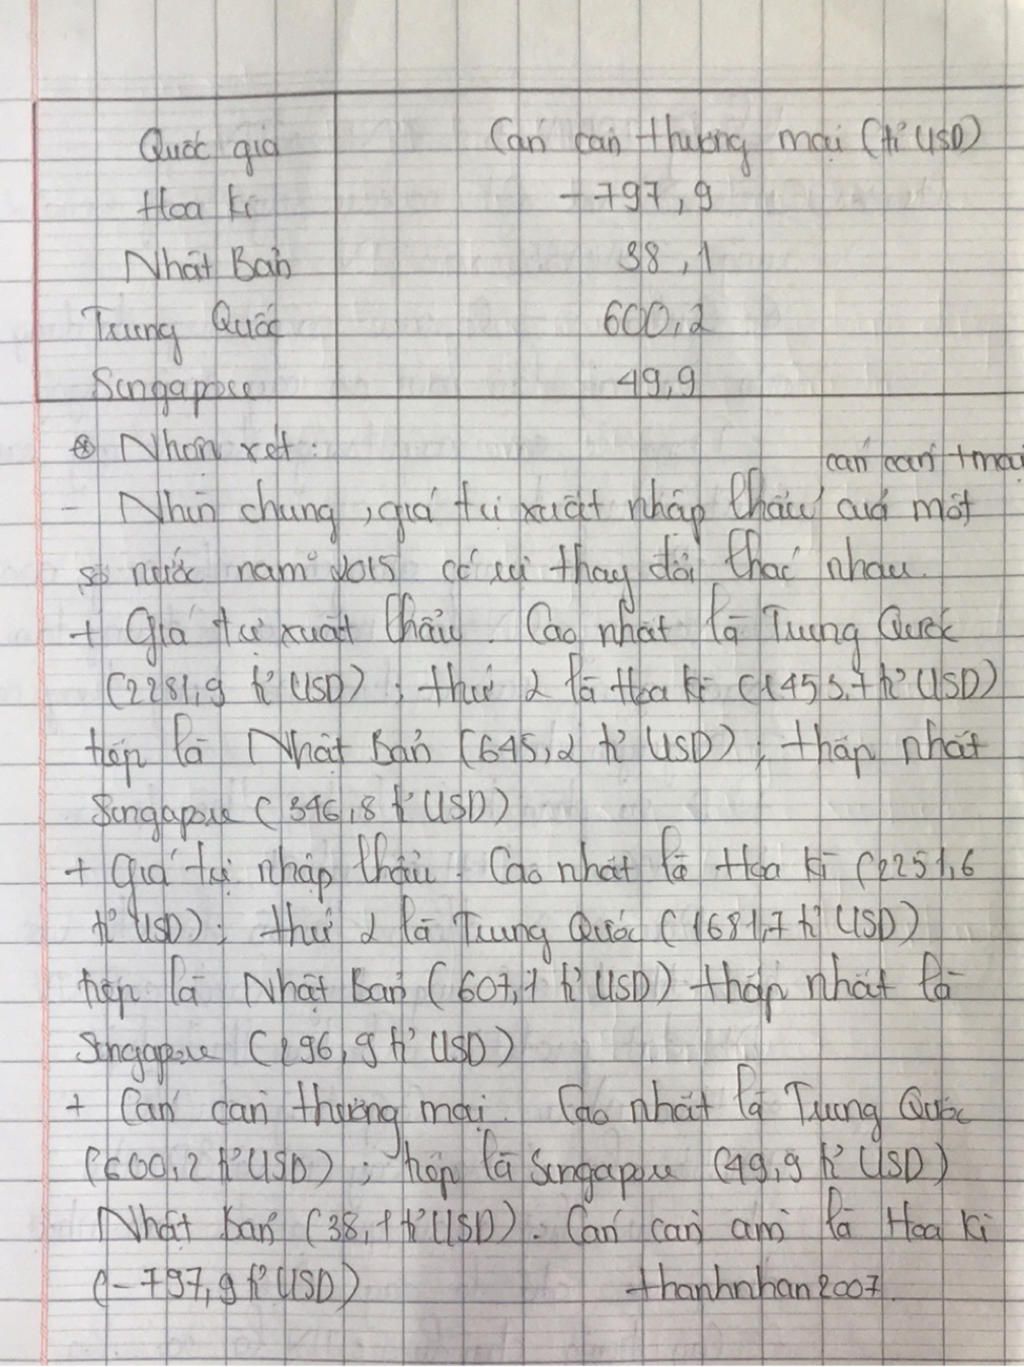 Quốc gia Cán cân thương mại (tỉ USD)
Hoa Kì -797,9
Nhật Bản 38,1
Trung Quốc 600,2
Singapore 49,9
⊛ Nhận xét:
cán cân tmại
- Nhìn chung, giá trị xuất nhập khẩu của một
số nước năm 2015 có sự thay đổi khác nhau.
+ Giá trị xuất khẩu. Cao nhất là Trung Quốc
(2281,9 tỉ USD); thứ 2 là Hoa Kì (1453,7 tỉ USD)
tiếp là Nhật Bản (645,2 tỉ USD); thấp nhất
Singapore (346,8 tỉ USD)
+ Giá trị nhập khẩu. Cao nhất là Hoa Kì (2251,6
tỉ USD); thứ 2 là Trung Quốc (1681,7 tỉ USD)
tiếp là Nhật Bản (607,1 tỉ USD) thấp nhất là
Singapore (296,9 tỉ USD)
+ Cán cân thương mại. Cao nhất là Trung Quốc
(600,2 tỉ USD); tiếp là Singapore (49,9 tỉ USD)
Nhật Bản (38,1 tỉ USD). Cán cân âm là Hoa Kì
(-797,9 tỉ USD) thanhnhan2007